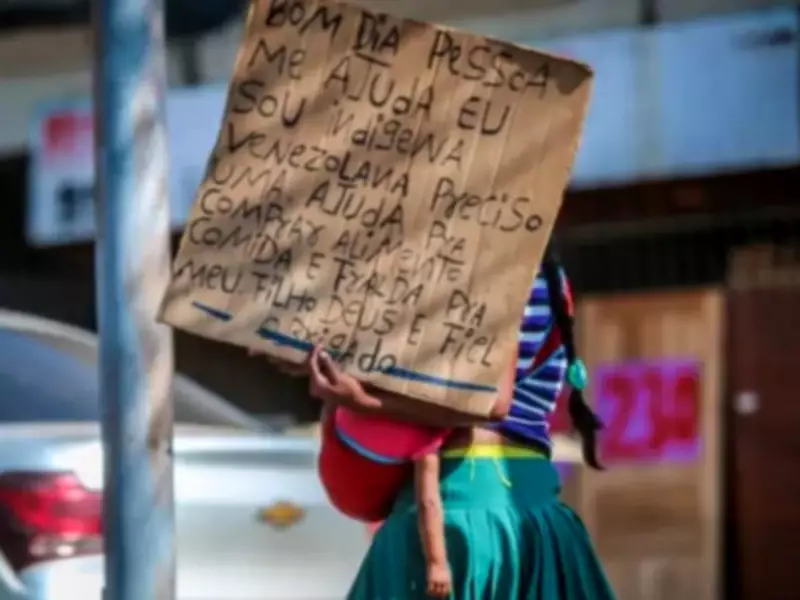 BOM DIA PESSOA
ME AJUDA EU
SOU indigena
VENEZOLANA PRECISO
UMA AJUDA PRA
COMPRAR ALIMENTO
COMIDA E FRALDA PRA
MEU FILHO DEUS E FIEL
OBRIGADO
234